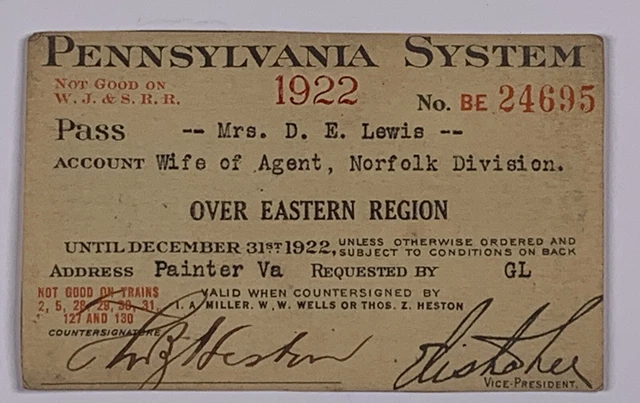 PENNSYLVANIA SYSTEM
NOT GOOD ON
W. J. & S. R. R.
1922
No. BE 24695
PASS -- Mrs. D. E. Lewis --
ACCOUNT Wife of Agent, Norfolk Division.
OVER EASTERN REGION
UNTIL DECEMBER 31ST 1922, UNLESS OTHERWISE ORDERED AND
SUBJECT TO CONDITIONS ON BACK
ADDRESS Painter Va REQUESTED BY GL
NOT GOOD ON TRAINS
2, 5, 28, 29, 30, 31,
127 AND 130
VALID WHEN COUNTERSIGNED BY
I. A. MILLER, W. W. WELLS OR THOS. Z. HESTON
COUNTERSIGNATURE
Thos Z Heston
VICE-PRESIDENT.